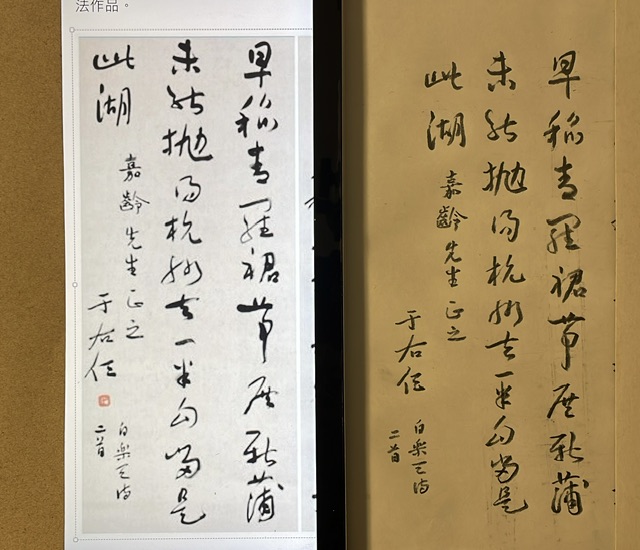 法作品。
早稻青羅裙帶展新蒲
未能拋得杭州去一半勾留是
此湖
嘉齡先生正之
于右任
白樂天詩
二首
早稻青羅裙帶展新蒲
未能拋得杭州去一半勾留是
此湖
嘉齡先生正之
于右任
白樂天詩
二首